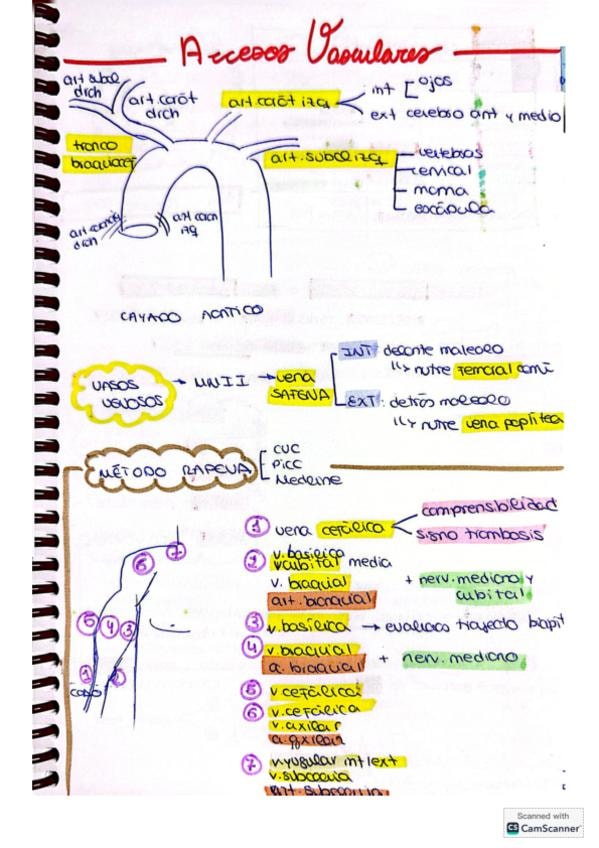 Accesos Vasculares
art subcl
drch
art.carót
drch
art.carót izq
int
ojos
ext cerebro ant y medio
tronco
braquiocef
art.subcl izq
vertebras
cervical
mama
escápula
drch
izq
CAYADO AÓRTICO
VASOS
VENOSOS
MMII
vena
SAFENA
INT: delante maleolo
nutre femoral comú
EXT: detrás maleolo
nutre vena poplítea
MÉTODO RAPEVA
CVC
PICC
Medline
1 vena cefálica
comprensibilidad
signo trombosis
v.basílica
v.cubital media
v. braquial
art. braquial
+ nerv. mediano y
cubital
3 v.basílica → evaluamos trayecto
4 v.braquial
a. braquial
+ nerv. mediano
5 v.cefálica
6 v.cefálica
v.axilar
a.axilar
7 v.yugular int ext
v.subclavia
art. subclavia
7
6
5
4
3
1
2
codo
Scanned with
CS CamScanner